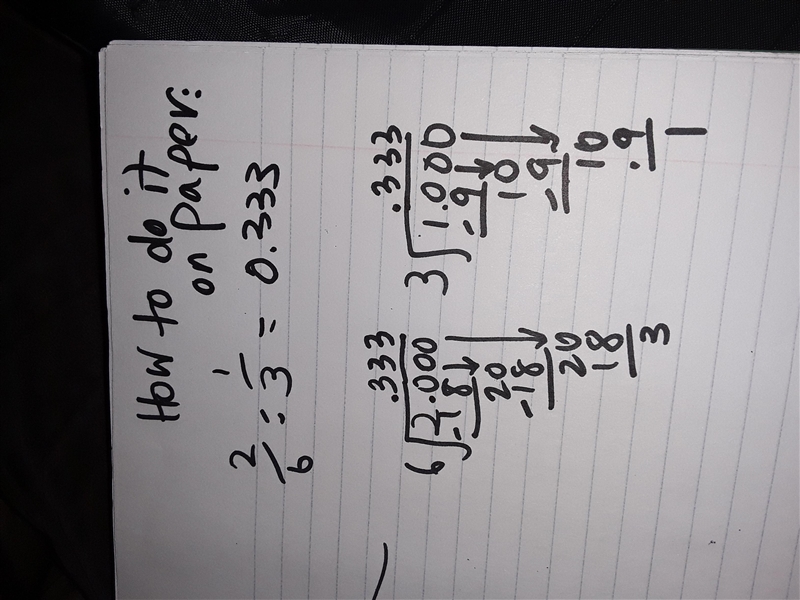 How to do it
on paper:
2/6 = 1/3 = 0.333
.333
6 2.000
-18
20
-18
20
18
3
.333
3 1.000
-9
10
-9
10
.9
1